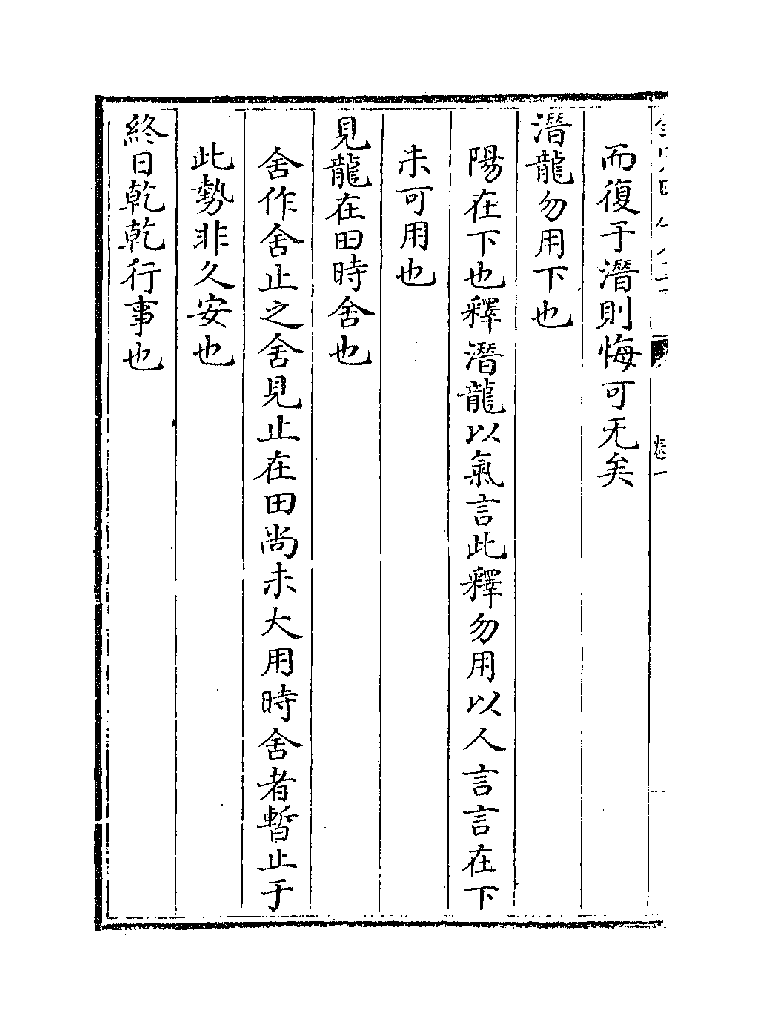 而復于潛則悔可无矣
潛龍勿用下也
陽在下也釋潛龍以氣言此釋勿用以人言言在下
未可用也
見龍在田時舍也
舍作舍止之舍見止在田尚未大用時舍者暫止于
此勢非久安也
終日乾乾行事也